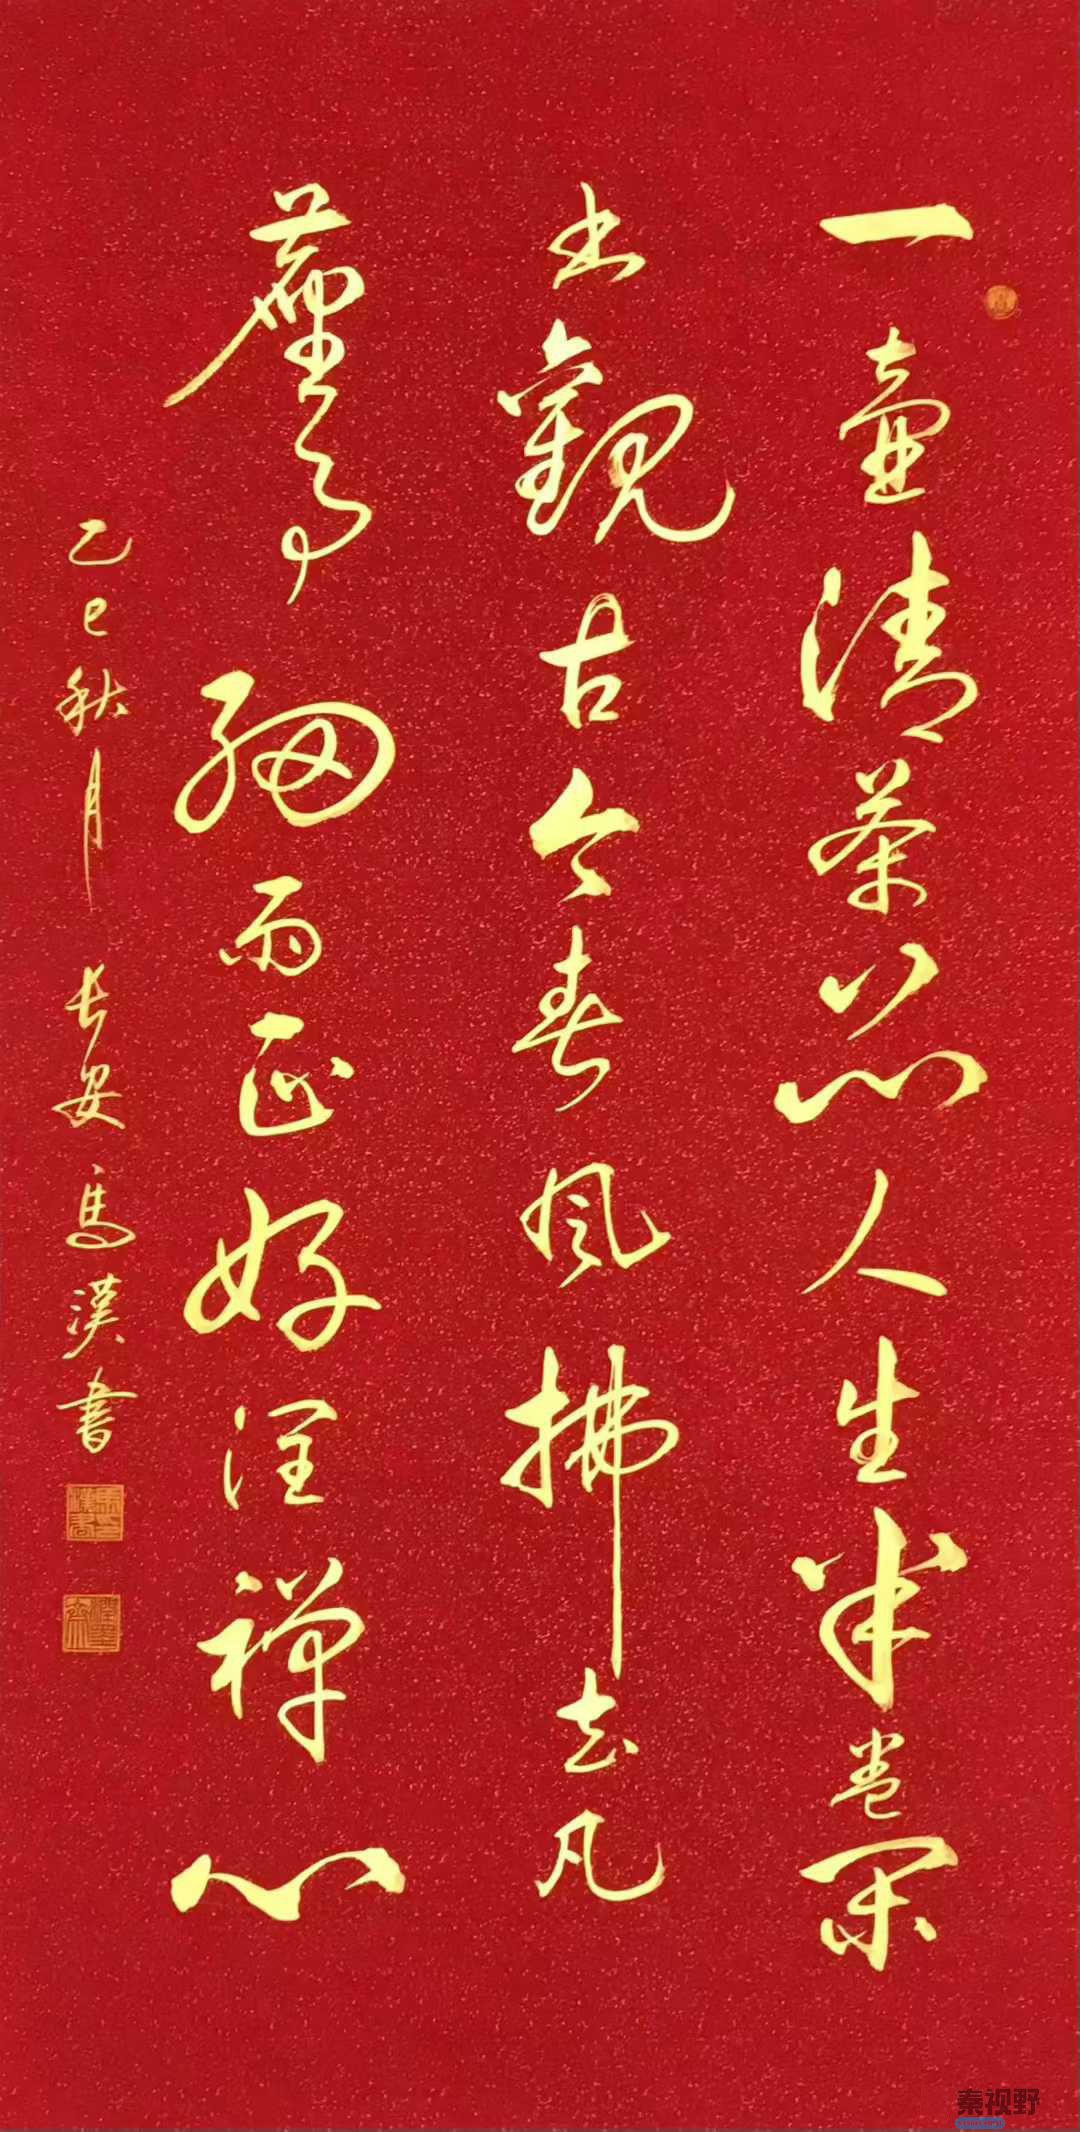 一壺清茶品人生半卷閑
書觀古今春風拂去凡
塵事細雨正好潤禪心
乙巳秋月 長安馬漢書
秦视野